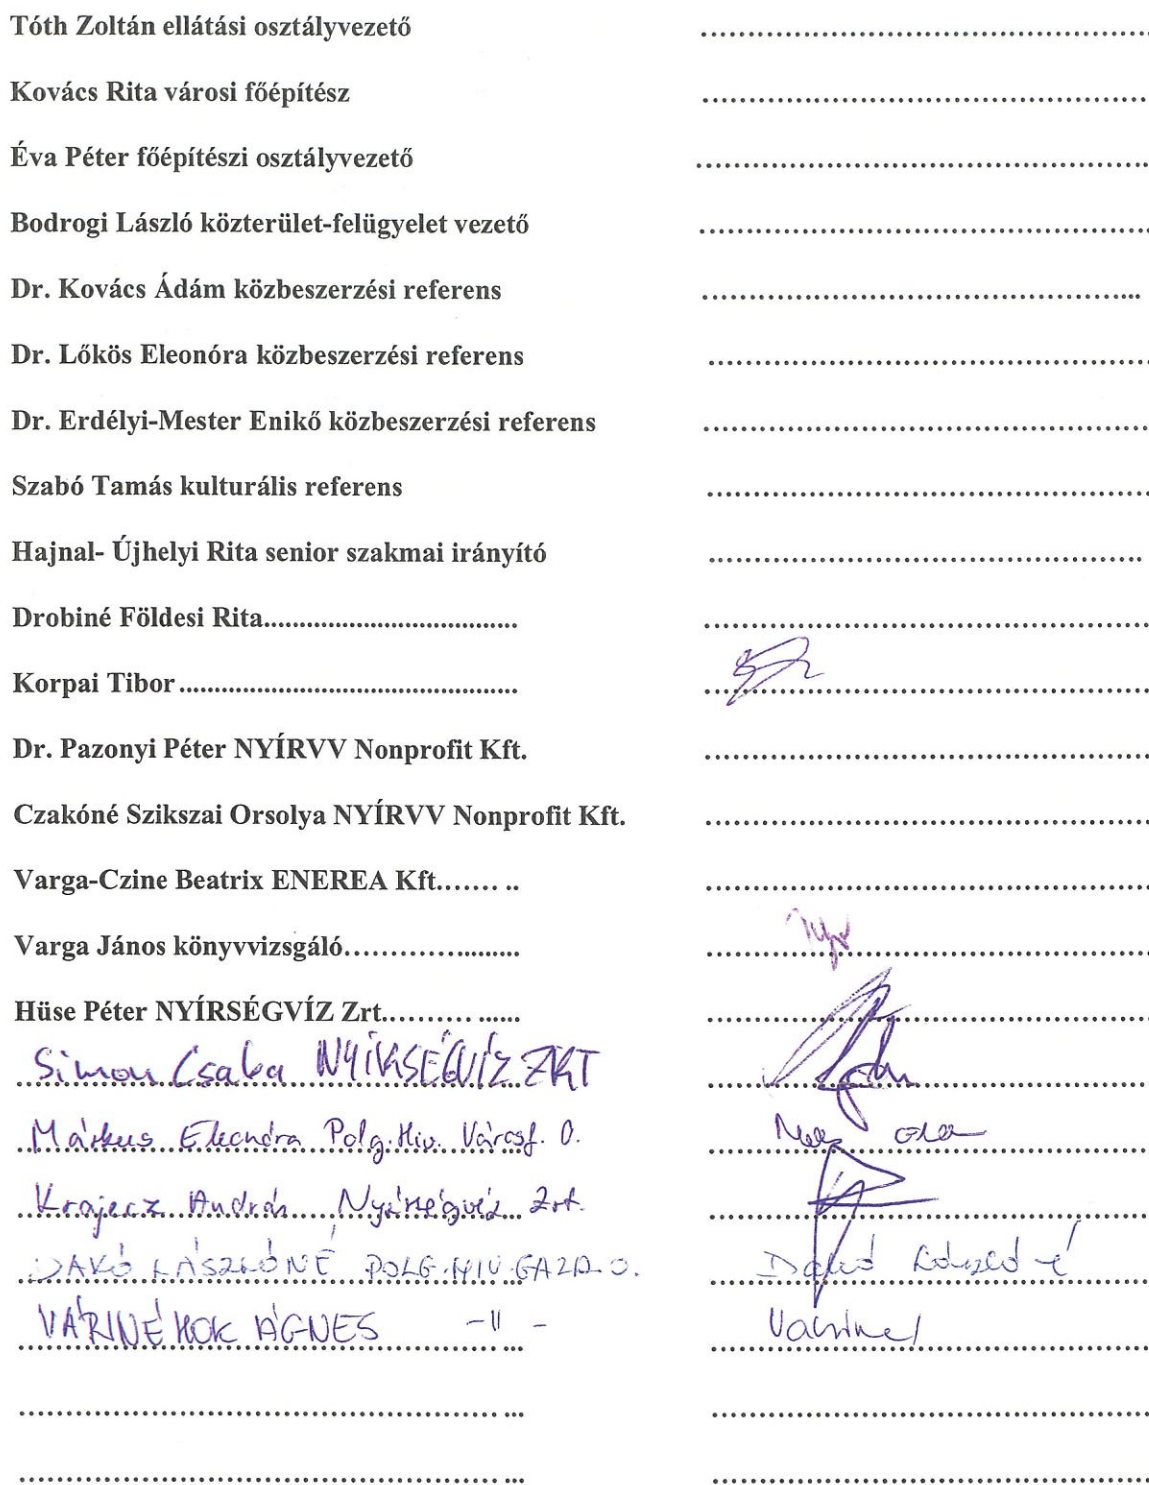 Tóth Zoltán ellátási osztályvezető ..................................................
Kovács Rita városi főépítész ..................................................
Éva Péter főépítészi osztályvezető ..................................................
Bodrogi László közterület-felügyelet vezető ..................................................
Dr. Kovács Ádám közbeszerzési referens ..................................................
Dr. Lőkös Eleonóra közbeszerzési referens ..................................................
Dr. Erdélyi-Mester Enikő közbeszerzési referens ..................................................
Szabó Tamás kulturális referens ..................................................
Hajnal- Újhelyi Rita senior szakmai irányító ..................................................
Drobiné Földesi Rita.................................... ..................................................
Korpai Tibor ................................................ ..................................................
Dr. Pazonyi Péter NYÍRVV Nonprofit Kft. ..................................................
Czakóné Szikszai Orsolya NYÍRVV Nonprofit Kft. ..................................................
Varga-Czine Beatrix ENEREA Kft....... .. ..................................................
Varga János könyvvizsgáló......................... ..................................................
Hüse Péter NYÍRSÉGVÍZ Zrt.......... ...... ..................................................
Simon Csaba NYÍRSÉGVÍZ ZRT
Márkus Eleonóra Polg. Hiv. Városf. O.
Krajecz András Nyírségvíz Zrt.
DAKÓ LÁSZLÓNÉ POLG. HIV. GAZD. O. Dakó Lászlóné
VÁRINÉ KOK ÁGNES -II- Váriné